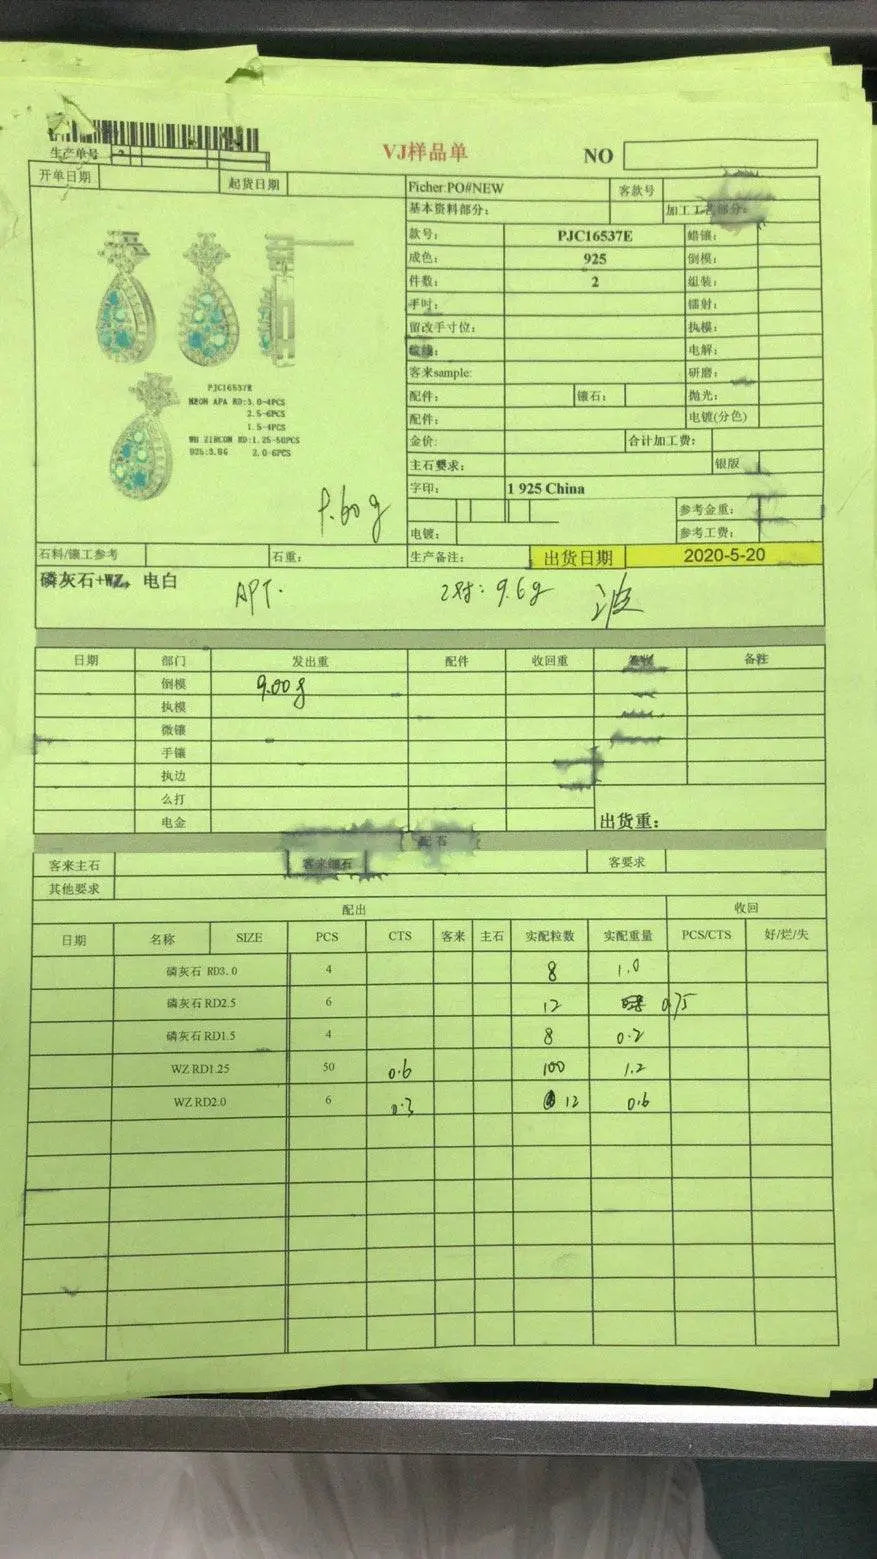 生产单号
VJ样品单 NO
开单日期 起货日期 Ficher:PO#NEW 客款号
基本资料部分: 加工工艺部分:
款号: PJC16537E 蜡镶:
成色: 925 倒模:
件数: 2 组装:
手吋: 镭射:
留改手寸位: 执模:
电解:
客来sample: 研磨:
配件: 镶石: 抛光:
配件: 电镀(分色)
金价: 合计加工费:
主石要求: 银版
字印: 1 925 China
参考金重:
电镀: 参考工费:
PJC16537E
NEON APA RD:3.0-4PCS
2.5-6PCS
1.5-4PCS
WH ZIRCON RD:1.25-50PCS
925:3.8G 2.0-6PCS
9.60g
石料/镶工参考 石重: 生产备注: 出货日期 2020-5-20
磷灰石+WZ, 电白
APT. 2对: 9.6g 波
日期 部门 发出重 配件 收回重 备注
倒模 9.00g
执模
微镶
手镶
执边
么打
电金 出货重:
配石
客来主石 客来镶石 客要求
其他要求
配出 收回
日期 名称 SIZE PCS CTS 客来 主石 实配粒数 实配重量 PCS/CTS 好/烂/失
磷灰石 RD3.0 4 8 1.0
磷灰石 RD2.5 6 12 0.75
磷灰石 RD1.5 4 8 0.2
WZ RD1.25 50 0.6 100 1.2
WZ RD2.0 6 0.3 12 0.6